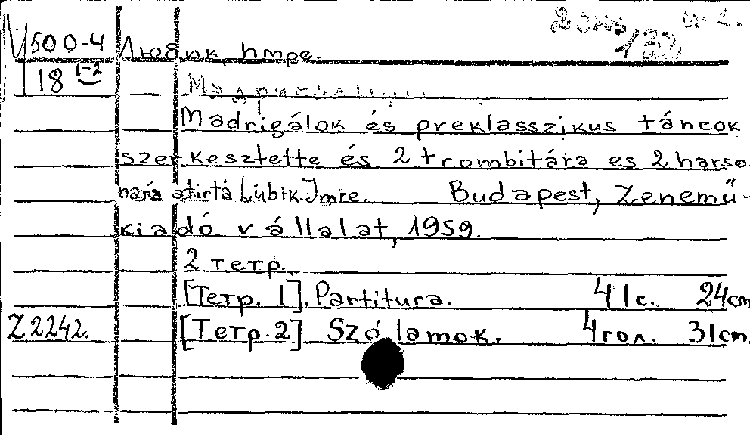 500-4 Любик, Imре.
18 1-2
Madrigálok és preklasszikus táncok
szerkesztette és 2 trombitára es 2 harso
nara atirta Lubik Imre. Budapest, Zenemű-
kiadó vállalat, 1959.
2 тетр.
[Тетр. 1]. Partitura. 41с. 24cm
Z2242. [Тетр. 2] Szólamok. 4гол. 31cm